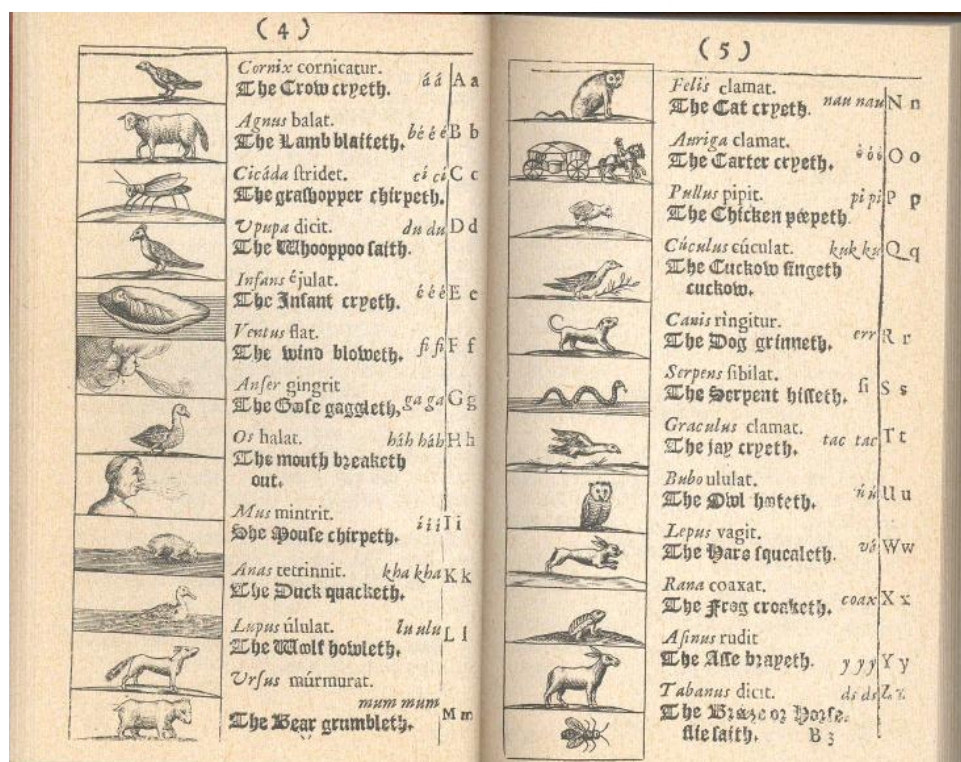 ( 4 )
Cornix cornicatur. á á A a
The Crow cryeth.
Agnus balat. bé é é B b
The Lamb blaiteth.
Cicáda ſtridet. cí cí C c
The graſhopper chirpeth.
Upupa dicit. du du D d
The Whooppoo ſaith.
Infans éjulat. é é é E e
The Infant cryeth.
Ventus flat. fi fi F f
The wind bloweth.
Anſer gingrit ga ga G g
The Gœſe gaggleth,
Os halat. háh háh H h
The mouth breaketh
out.
Mus mintrit. í í í I i
She Mouſe chirpeth.
Anas tetrinnit. kha kha K k
The Duck quacketh.
Lupus úlulat. lu ulu L l
The Wolf howleth.
Urſus múrmurat.
mum mum M m
The Bear grumbleth.
( 5 )
Felis clamat. nau nau N n
The Cat cryeth.
Auriga clamat. ò ó ó O o
The Carter cryeth.
Pullus pipit. pi pi P p
The Chicken pœpeth.
Cúculus cúculat. kuk ku Q q
The Cuckow ſingeth
cuckow.
Canis rìngitur. err R r
The Dog grinneth.
Serpens ſibilat. ſi S s
The Serpent hiſſeth.
Graculus clamat. tac tac T t
The jay cryeth.
Bubo ululat. ú ú U u
The Owl hœteth.
Lepus vagit. vá W w
The Hare ſqueaketh.
Rana coaxat. coax X x
The Frog croaketh.
Aſinus rudit y y y Y y
The Aſſe brayeth.
Tabanus dicit. ds ds Z z
The Breeze or Horſe-
flie ſaith. B 3